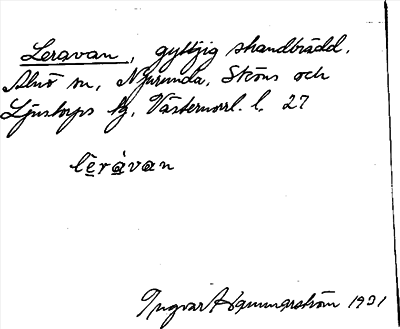 Leravan, gyttjig strandbrädd.
Alnö sn, Njurunda, Sköns och
Ljustorps tg, Västernorrl. l. 27
lēràvan
Ingvar Hammarström 1931